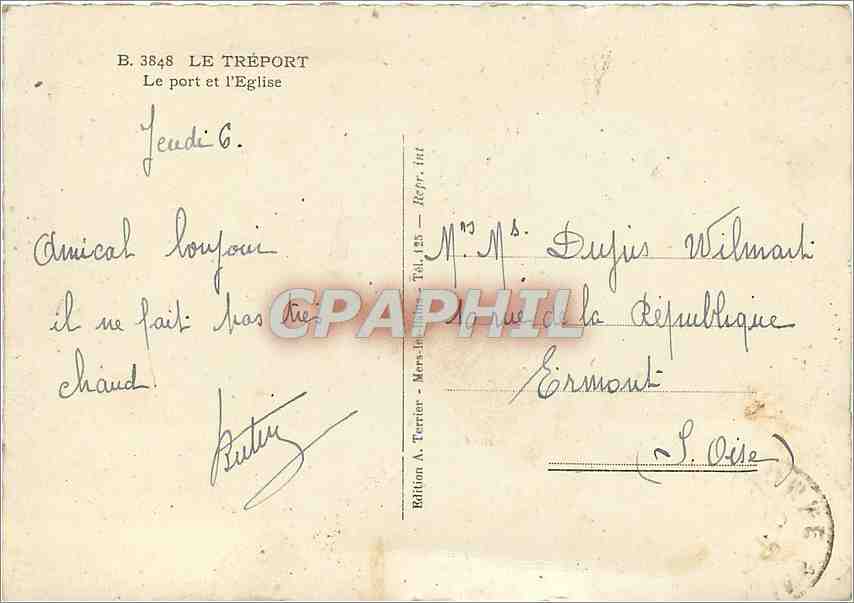 B. 3848 LE TRÉPORT
Le port et l'Eglise
Jeudi 6.
Amical bonjour
il ne fait pas très
chaud
Edition A. Terrier - Mers-les-Bains - Tél. 125 — Repr. int
CPAPHIL
Mrs Ms. Wilmart
rue de la République
Ermont
(S. Oise)